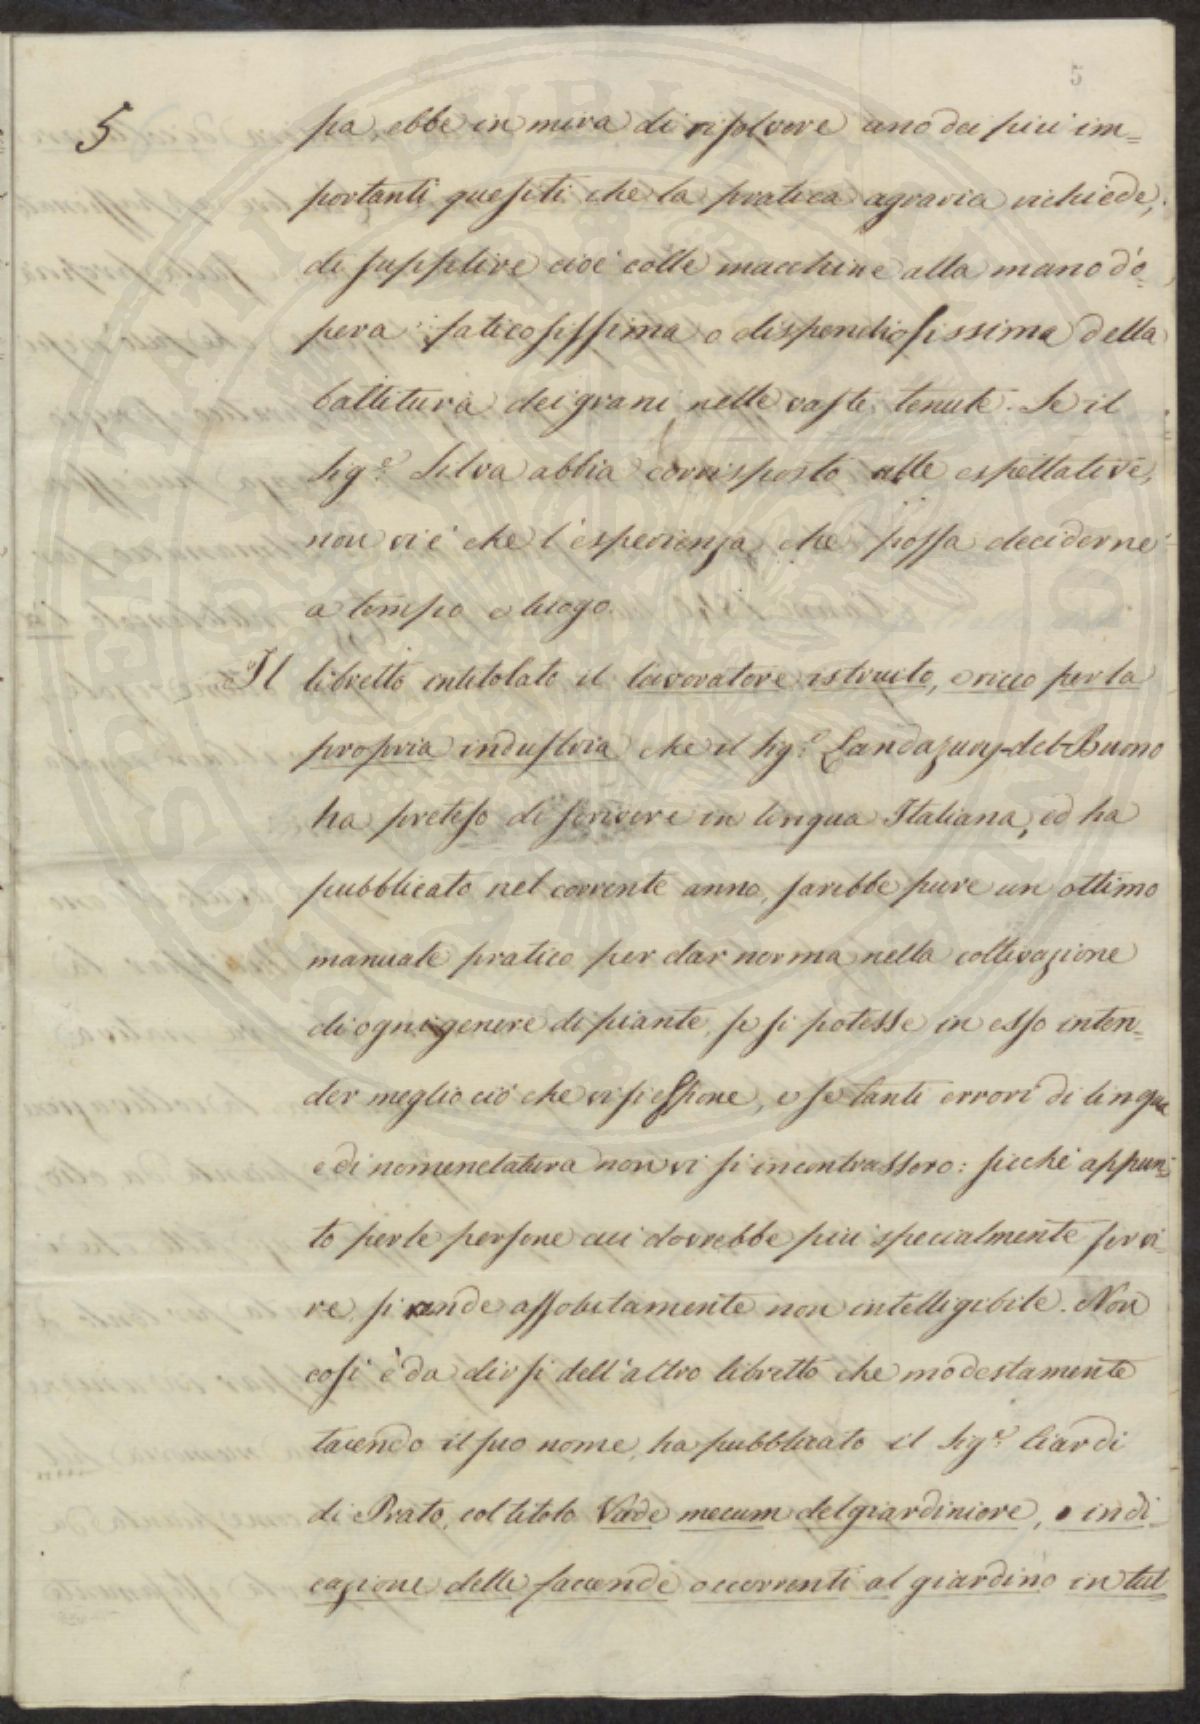 5
5
pa ebbe in mira di risolvere uno dei più im=
portanti quesiti che la pratica agraria richiede,
di supplire cioè colle macchine alla mano d'o=
pera faticosissima e dispendiosissima della
battitura dei grani nelle vaste tenute. Se il
Sig.e Silva abbia corrisposto alle espettative,
non vi è che l'esperienza che possa deciderne
a tempo e luogo.
Il libretto intitolato il lavoratore istruito, e ricco per la
propria industria che il Sig.e Landazury-del-Buono
ha preteso di scrivere in lingua Italiana, ed ha
pubblicato nel corrente anno, sarebbe pure un ottimo
manuale pratico per dar norma nella coltivazione
di ogni genere di piante, se si potesse in esso inten=
der meglio ciò che vi si espone, e se tanti errori di lingua
e di nomenclatura non vi si incontrassero: sicché appun=
to per le persone cui dovrebbe più specialmente servi=
re, si rende assolutamente non intelligibile. Non
così è da dirsi dell'altro libretto che modestamente
tacendo il suo nome, ha pubblicato il Sig.e Ciardi
di Prato, col titolo Vade mecum del giardiniere, o indi=
cazione delle faccende occorrenti al giardino in tut=